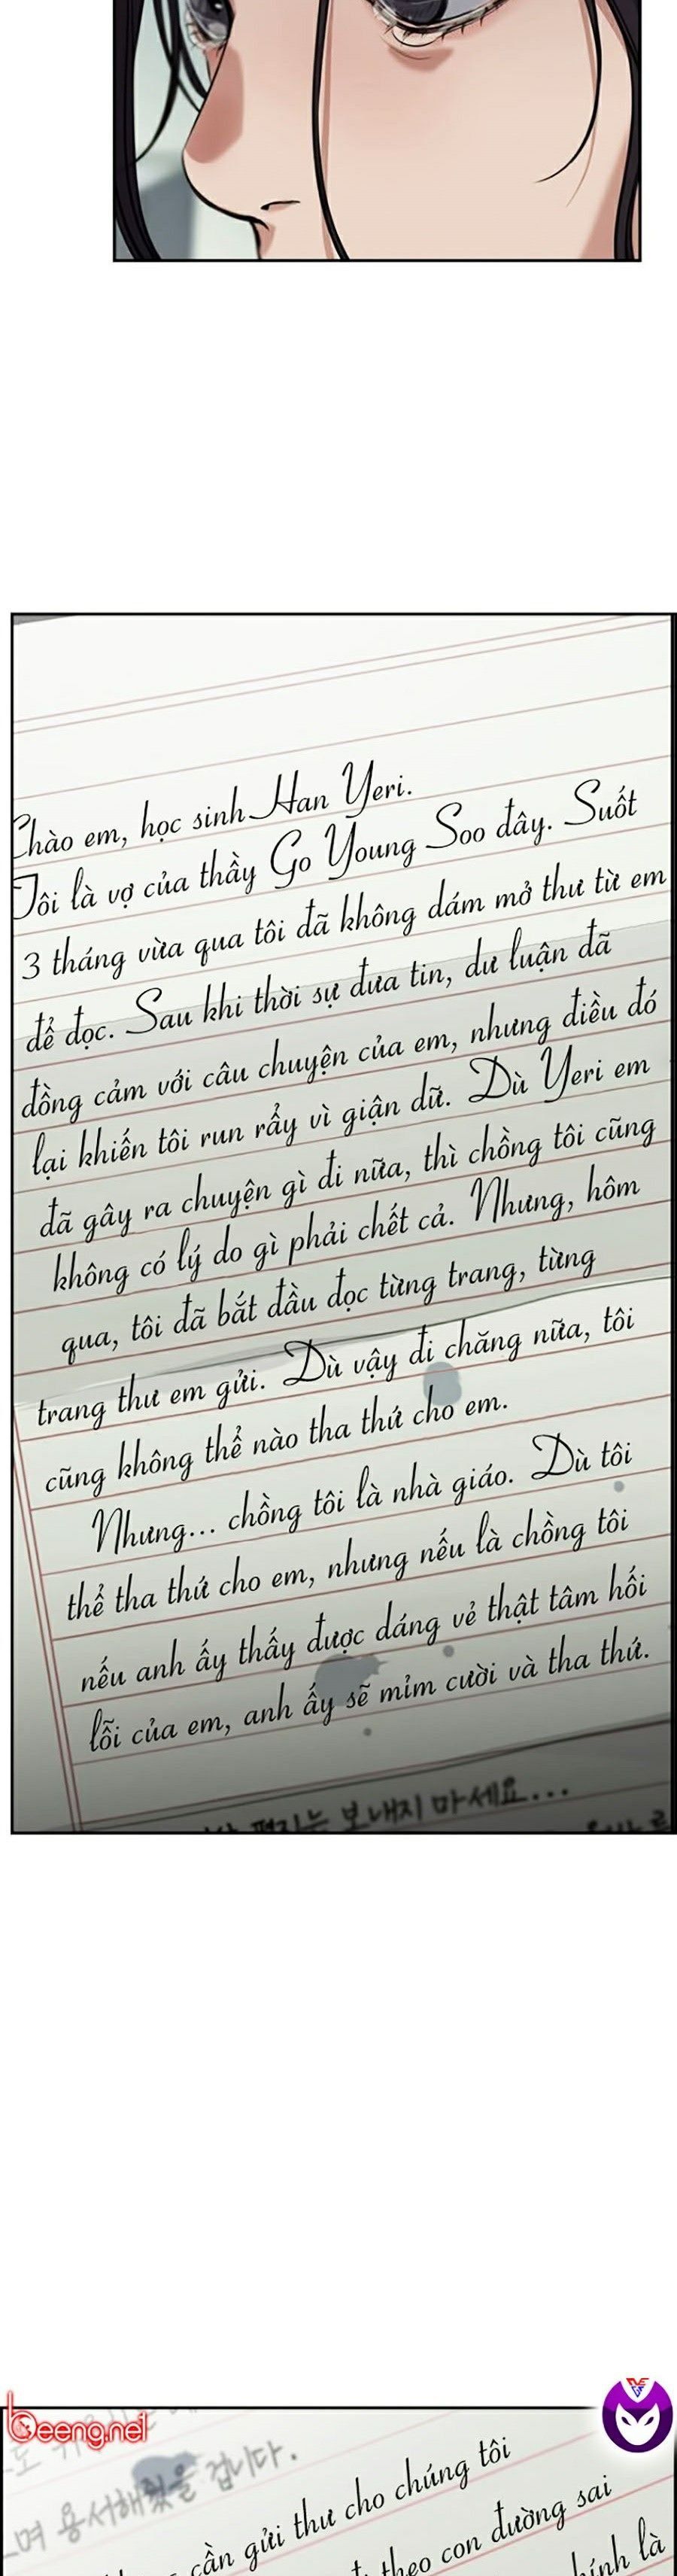 Chào em, học sinh Han Yeri.
Tôi là vợ của thầy Go Young Soo đây. Suốt
3 tháng vừa qua tôi đã không dám mở thư từ em
để đọc. Sau khi thời sự đưa tin, dư luận đã
đồng cảm với câu chuyện của em, nhưng điều đó
lại khiến tôi run rẩy vì giận dữ. Dù Yeri em
đã gây ra chuyện gì đi nữa, thì chồng tôi cũng
không có lý do gì phải chết cả. Nhưng, hôm
qua, tôi đã bắt đầu đọc từng trang, từng
trang thư em gửi. Dù vậy đi chăng nữa, tôi
cũng không thể nào tha thứ cho em.
Nhưng... chồng tôi là nhà giáo. Dù tôi
thể tha thứ cho em, nhưng nếu là chồng tôi
nếu anh ấy thấy được dáng vẻ thật tâm hối
lỗi của em, anh ấy sẽ mỉm cười và tha thứ.
편지는 보내지 마세요...
beeng.net
며 용서해줬을 겁니다.
cần gửi thư cho chúng tôi
theo con đường sai
chính là